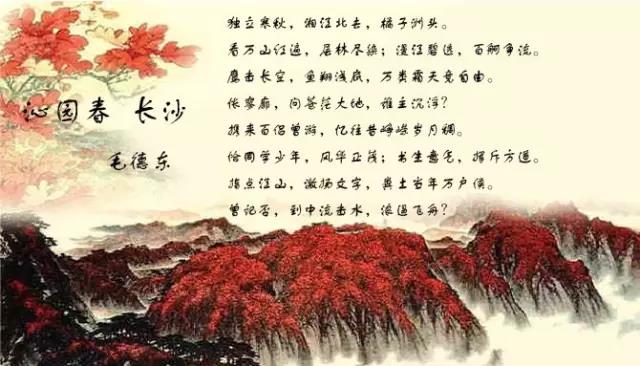 沁园春 长沙
毛德东
独立寒秋，湘江北去，橘子洲头。
看万山红遍，层林尽染；漫江碧透，百舸争流。
鹰击长空，鱼翔浅底，万类霜天竞自由。
怅寥廓，问苍茫大地，谁主沉浮？
携来百侣曾游，忆往昔峥嵘岁月稠。
恰同学少年，风华正茂；书生意气，挥斥方遒。
指点江山，激扬文字，粪土当年万户侯。
曾记否，到中流击水，浪遏飞舟？